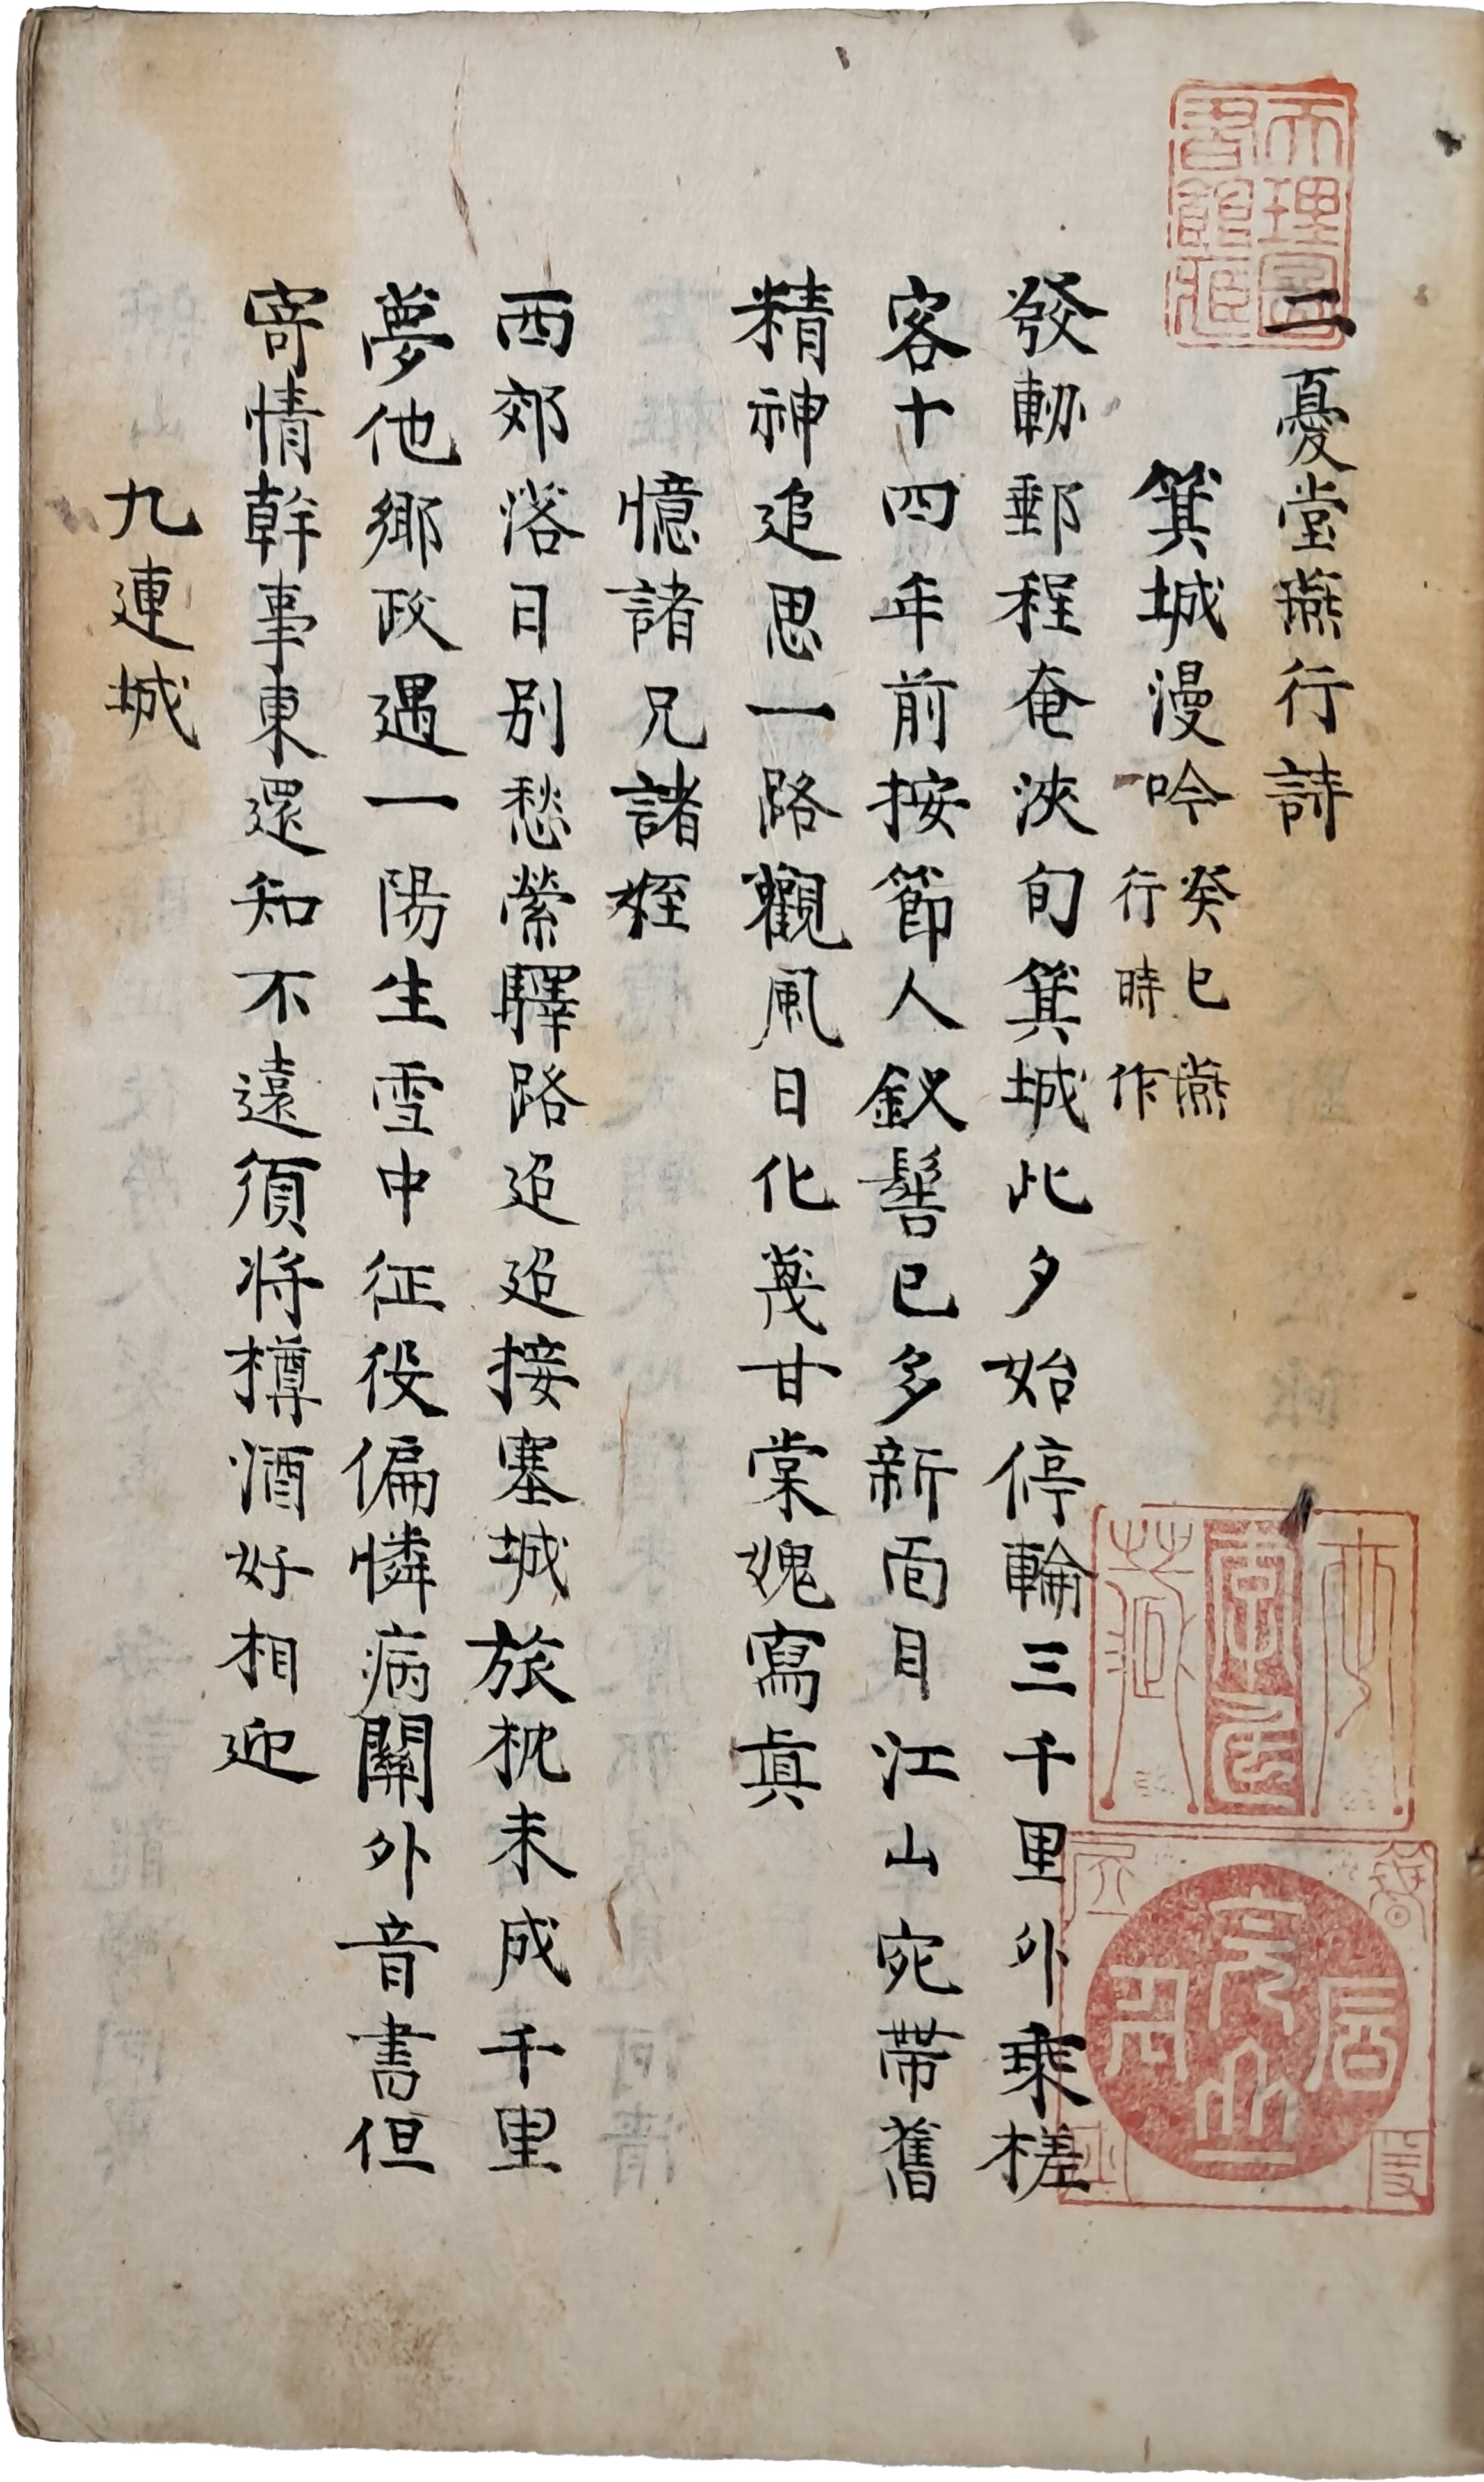 二憂堂燕行詩
箕城漫吟 癸巳燕行時作
發軔郵程奄浹旬箕城此夕始停輪三千里外乘槎
客十四年前按節人釵髻已多新面目江山宛帶舊
精神追思一路觀風日化蔑甘棠愧寫眞
憶諸兄諸姪
西郊落日別愁縈驛路迢迢接塞城旅枕未成千里
夢他鄉政遇一陽生雪中征役偏憐病關外音書但
寄情幹事東還知不遠須将樽酒好相迎
九連城
天理圖書館藏